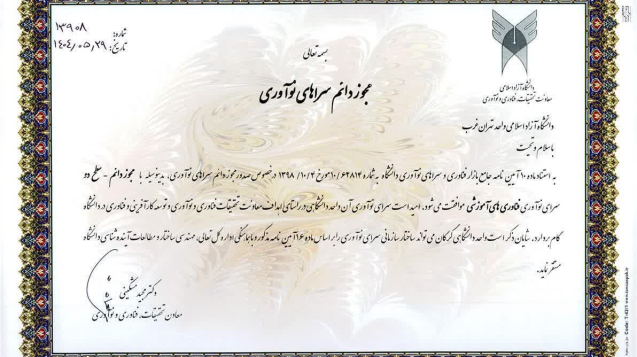 شماره: ۱۳۹۰۸
تاریخ: ۱۴۰۴/۰۵/۲۹
بسمه تعالی
دانشگاه آزاد اسلامی
معاونت تحقیقات، فناوری و نوآوری
مجوز دائم سراهای نوآوری
دانشگاه آزاد اسلامی واحد تهران غرب
با سلام و تحیت
به استناد ماده ۱۰ آیین نامه جامع بازار فناوری و سراهای نوآوری دانشگاه به شماره ۱۰/۶۲۸۱۴ مورخ ۱۳۹۸/۱۰/۲ درخصوص صدور مجوز دائم سراهای نوآوری، بدینوسیله با مجوز دائم - سطح دو
سرای نوآوری فناوری های آموزشی موافقت می شود. امید است سرای نوآوری آن واحد دانشگاهی در راستای اهداف معاونت تحقیقات فناوری و نوآوری و توسعه کارآفرینی و فناوری در دانشگاه
گام بردارد. شایان ذکر است واحد دانشگاهی گرگان می تواند ساختار سازمانی سرای نوآوری را بر اساس ماده ۱۶ آیین نامه مذکور و با هماهنگی اداره کل تعالی، مهندسی ساختار و مطالعات آینده شناسی دانشگاه
مستقر نماید.
دکتر مجید مشکینی
معاون تحقیقات، فناوری و نوآوری